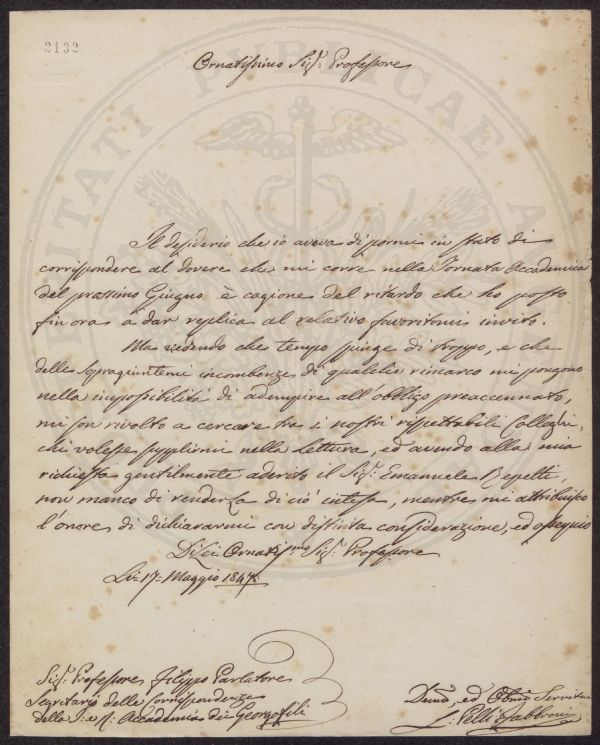 2132
Ornatissimo Sig.r Professore
Il desiderio che io aveva di pormi in stato di
corrispondere al dovere che mi corre nella Tornata Accademica
del prossimo Giugno è cagione del ritardo che ho posto
fin ora a dar replica al relativo favoritomi invito.
Ma vedendo che tempo spinge di troppo, e che
delle sopragiuntemi incombenze di qualche rimarco mi pongono
nella impossibilità di adempire all'obbligo preaccennato,
mi son rivolto a cercare tra i nostri rispettabili Colleghi
chi volesse supplirmi nella Lettura, ed avendo alla mia
richiesta gentilmente aderito il Sig.r Emanuele Repetti
non manco di renderla di ciò intesa, mentre mi attribuisco
l'onore di dichiararmi con distinta considerazione, ed ossequio
Di Lei Ornatis.mo Sig.r Professore
Li 17 Maggio 1847.
Sig.r Professore Filippo Parlatore
Segretario delle Corrispondenze
della I. e R. Accademia dei Georgofili
Dev.mo ed Obb.mo Servitore
L. Pelli Fabbroni
ITATI PUBLICAE A